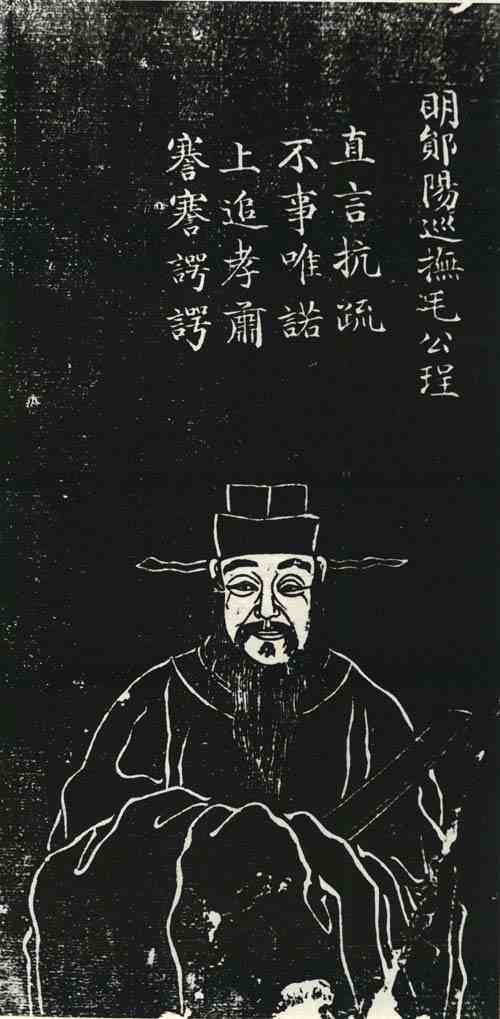 明鄖陽巡撫毛公珵
直言抗疏
不事唯諾
上追孝肅
謇謇諤諤